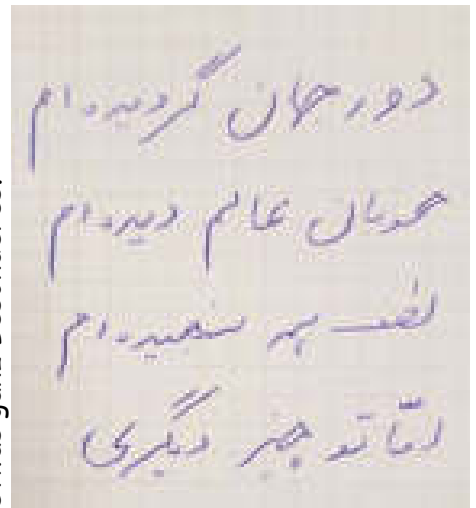 دور جهان گردیده‌ام
خوبان عالم دیده‌ام
لطف همه سنجیده‌ام
امّا تو چیز دیگری